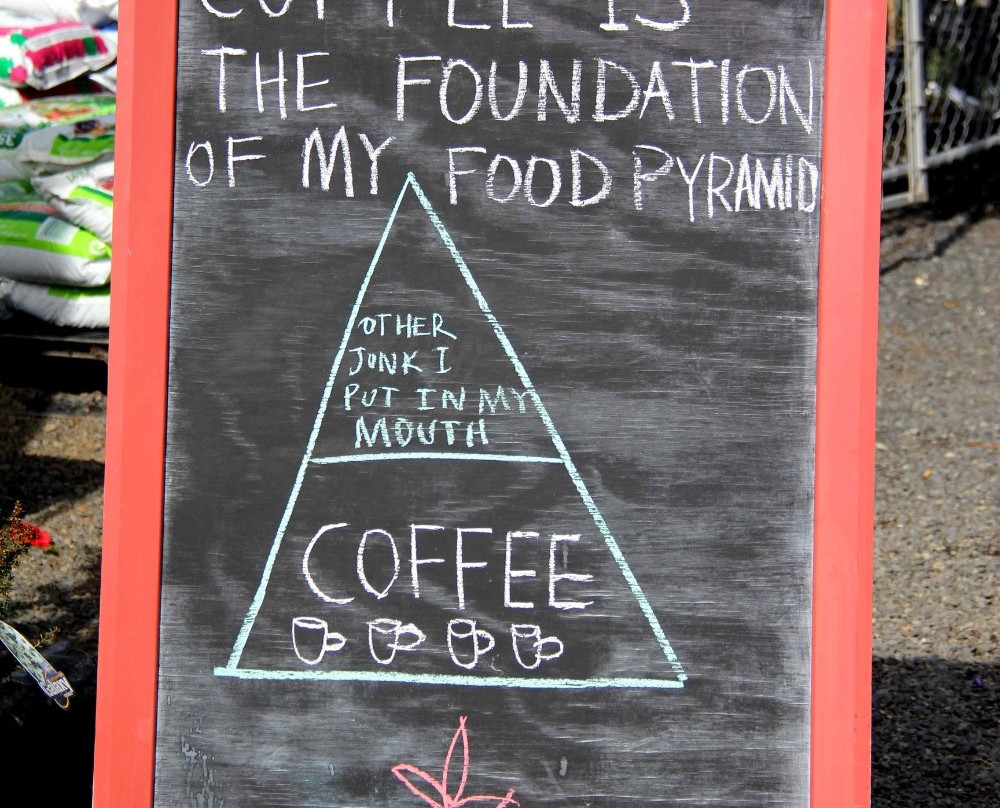 COFFEE IS
THE FOUNDATION
OF MY FOOD PYRAMID
OTHER
JUNK I
PUT IN MY
MOUTH
COFFEE